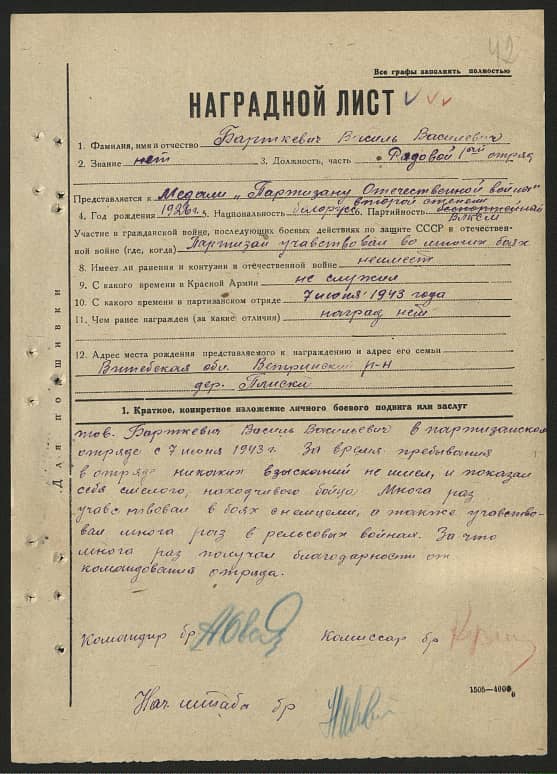 42
Все графы заполнять полностью
НАГРАДНОЙ ЛИСТ
1. Фамилия, имя и отчество Барткевич Василь Василевич
2. Звание нет 3. Должность, часть Рядовой 1ой отряд
Представляется к Медали „Партизану Отечественной войны"
второй степени
4. Год рождения 1926 г. 5. Национальность белорус 6. Партийность беспартейный
ВЛКСМ
Участие в гражданской войне, последующих боевых действиях по защите СССР в отечествен-
ной войне (где, когда) Партизан учавствовал во многих боях
8. Имеет ли ранения и контузии в отечественной войне неимеет
9. С какого времени в Красной Армии не служил
10. С какого времени в партизанском отряде 7 июня 1943 года
11. Чем ранее награжден (за какие отличия) наград нет
12. Адрес места рождения представляемого к награждению и адрес его семьи
Витебская обл. Ветринский р-н
дер. Плиски
Для подшивки
1. Краткое, конкретное изложение личного боевого подвига или заслуг
тов. Барткевич Василь Васильевич в партизанском
отряде с 7 июня 1943 г. За время пребывания
в отряде никаких взысканий не имел, и показал
себя смелого, находчивого бойца. Многа раз
учавствовал в боях с немцами, а также учавство-
вал многа раз в рельсовых войнах. За что
многа раз получал благодарности от
командования отряда.
Командир бр Комиссар бр
1505—4000
Нач. штаба бр